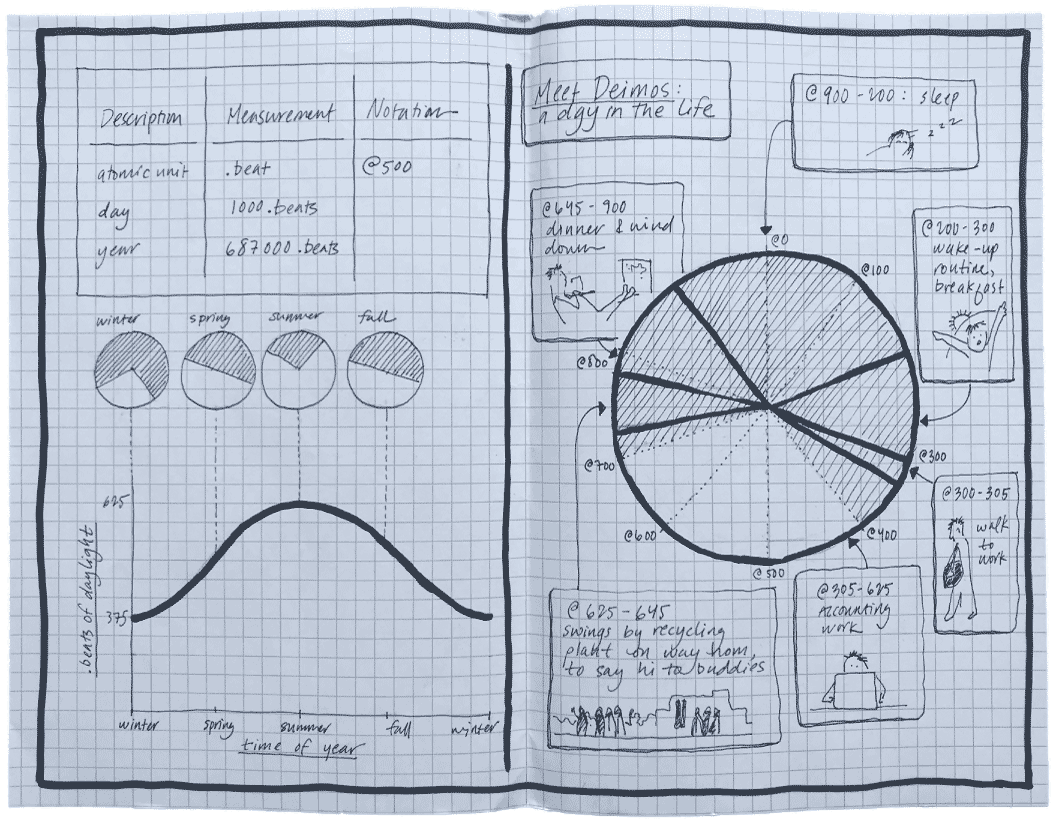 Description Measurement Notation
atomic unit .beat @500
day 1000 .beats
year 687000 .beats
winter spring summer fall
625
375
.beats of daylight
winter spring summer fall winter
time of year
Meet Deimos:
a day in the life
@900-200: sleep
zzz
@645-900
dinner & wind
down
@200-300
wake-up
routine,
breakfast
@0
@100
@300
@400
@500
@600
@700
@800
@300-305
walk
to
work
@305-625
Accounting
work
@625-645
swings by recycling
plant on way hom,
to say hi to buddies